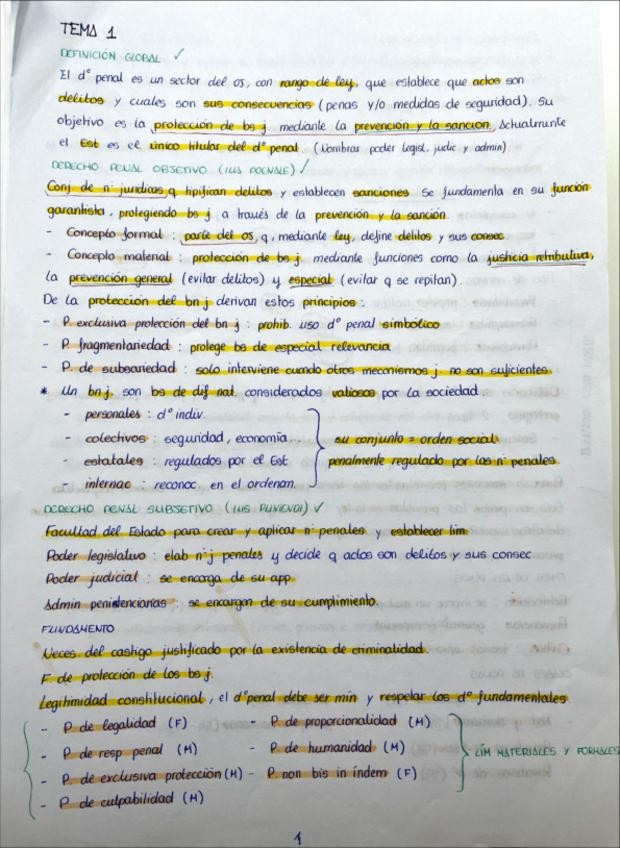 TEMA 1
DEFINICIÓN GLOBAL ✓
El dº penal es un sector del OJ, con rango de ley, que establece que actos son
delitos y cuales son sus consecuencias (penas y/o medidas de seguridad). Su
objetivo es la protección de bs j. mediante la prevención y la sanción. Actualmente
el Est es el único titular del dº penal. (Nombrar poder legisl, judic y admin)
DERECHO PENAL OBJETIVO (IUS POENALE) ✓
Conj de nº jurídicas q tipifican delitos y establecen sanciones. Se fundamenta en su función
garantista, protegiendo bs j a través de la prevención y la sanción.
- Concepto formal : parte del OJ, q, mediante ley, define delitos y sus consec
- Concepto material : protección de bs j. mediante funciones como la justicia retributiva,
la prevención general (evitar delitos) y especial (evitar q se repitan).
De la protección del bn j derivan estos principios :
- P. exclusiva protección del bn j : prohib. uso dº penal simbólico
- P. fragmentariedad : protege bs de especial relevancia
- P. de subsariedad : solo interviene cuando otros mecanismos j. no son suficientes.
* Un bn j. son bs de dif nat. considerados valiosos por la sociedad
- personales : dº indiv.
- colectivos : seguridad, economía...
- estatales : regulados por el Est
- internac : reconoc. en el ordenam.
su conjunto = orden social
penalmente regulado por las nº penales
DERECHO PENAL SUBJETIVO (IUS PUNIENDI) ✓
Facultad del Estado para crear y aplicar nº penales y establecer lím.
Poder legislativo : elab nº j penales y decide q actos son delitos y sus consec
Poder judicial : se encarga de su app.
Admin penitenciarias : se encargan de su cumplimiento.
FUNDAMENTO
Neces. del castigo justificado por la existencia de criminalidad.
F. de protección de los bs j.
Legitimidad constitucional, el dº penal debe ser mín y respetar los dº fundamentales
- P. de legalidad (F) - P. de proporcionalidad (M)
- P. de resp penal (M) - P. de humanidad (M)
- P. de exclusiva protección (M) - P. non bis in índem (F)
- P. de culpabilidad (M)
LÍM MATERIALES Y FORMALES
1